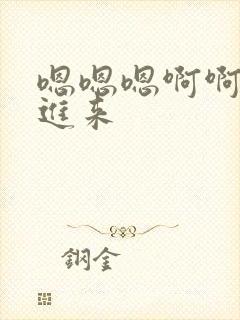 嗯嗯嗯啊啊
进来
钢金